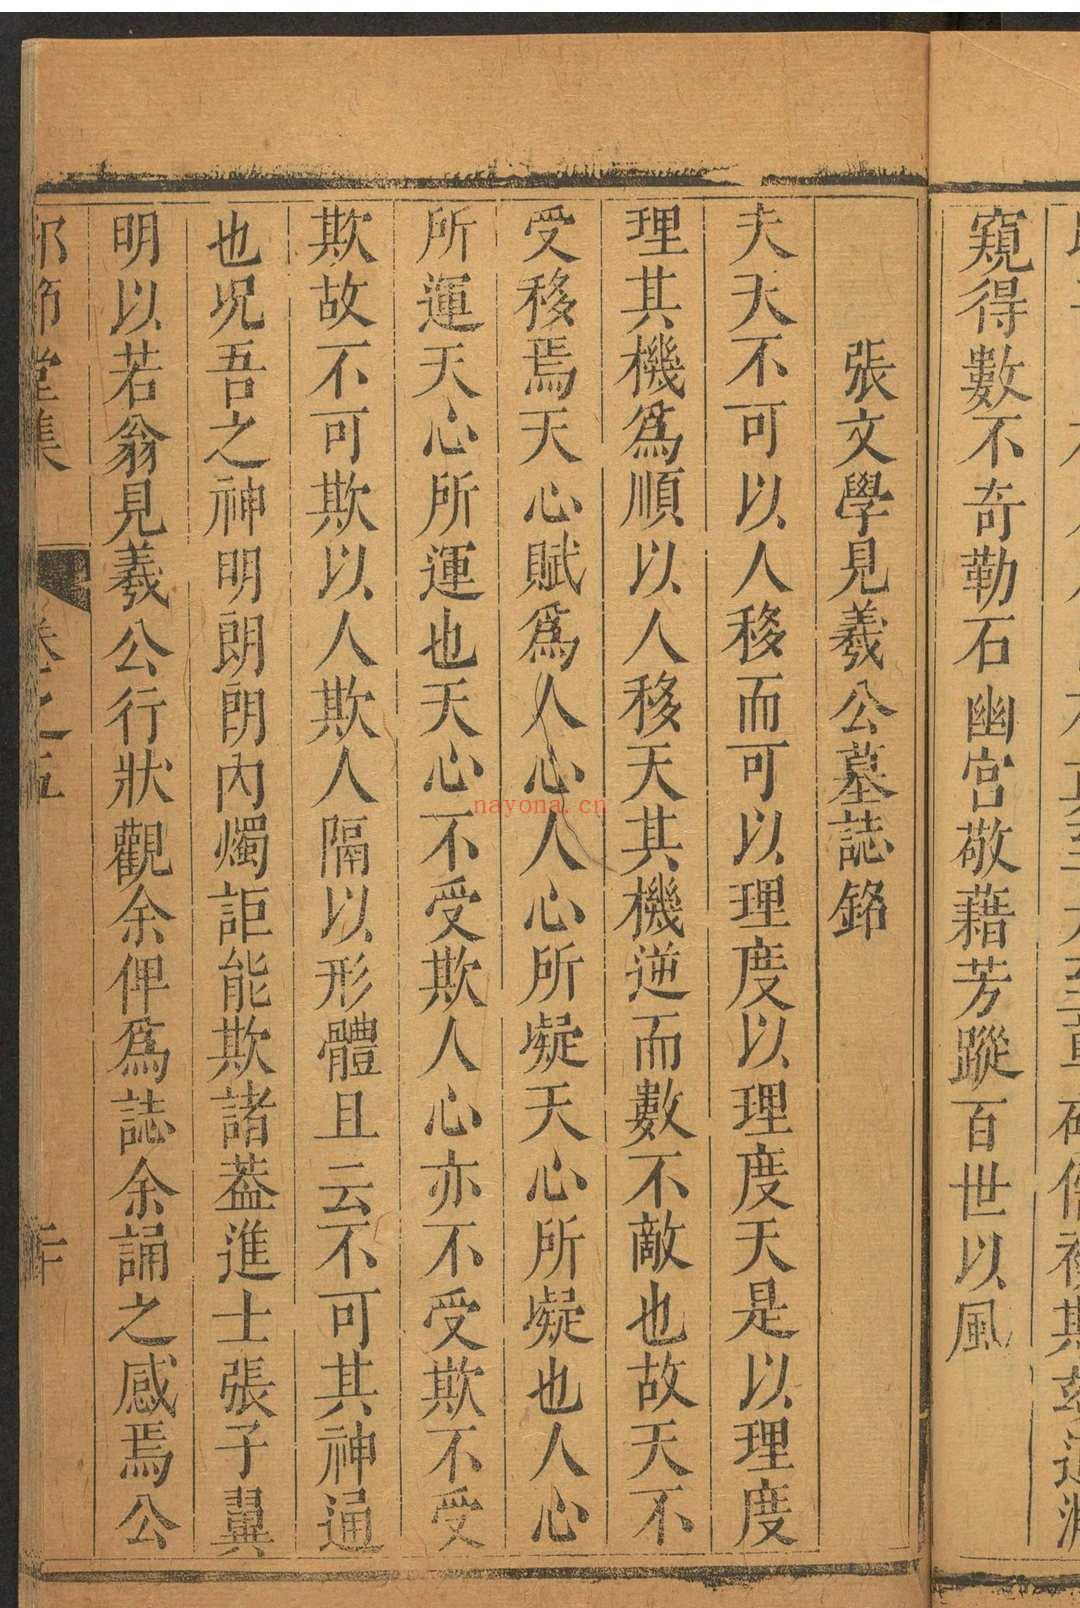 窺得數不奇勒石幽宮敬藉芳蹤百世以風
張文學見羲公墓誌銘
夫天不可以人移而可以理度以理度天是以理度
理其機為順以人移天其機逆而數不敵也故天不
受移焉天心賦為人心人心所凝天心所凝也人心
所運天心所運也天心不受欺人心亦不受欺不受
欺故不可欺以人欺人隔以形體且云不可其神通
也況吾之神明朗朗內燭詎能欺諸葢進士張子翼
明以若翁見羲公行狀觀余俾為誌余誦之感焉公
節堂集
卷之五
nayona.cn